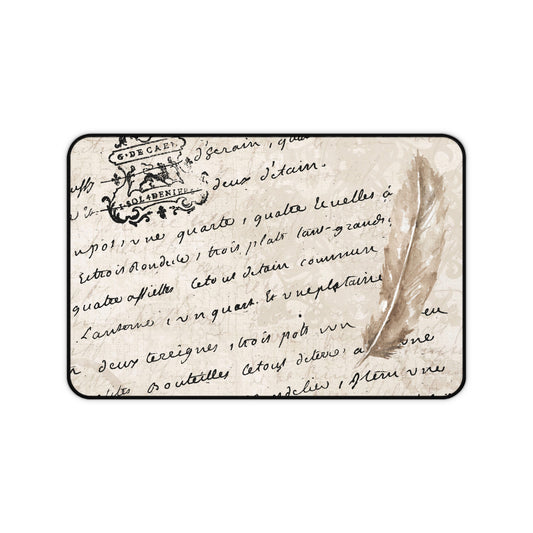 G·DE CAEN
1·SOL 4 DENIERS
d'Serain, qua
deux d'étain.
un pot, une quarte, quatre Ecuelles à
Et trois Rondelle, trois plats sans grands,
quatre assiettes Cetout détain commun
Lanterne, un quart. Et une plataine
deux terrignes, trois pots un en
Bouteilles Cetout de terre, a une
delier, Item une